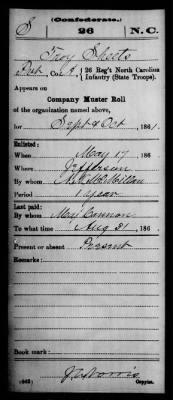 (Confederate.)
S 26 N.C.
Troy Sheets
Pvt, Co. A, 26 Reg't North Carolina
Infantry (State Troops).
Appears on
Company Muster Roll
of the organization named above,
for Sept & Oct, 1861.
Enlisted:
When May 17, 186 .
Where Jefferson
By whom N. McMillan
Period 1 year
Last paid:
By whom Maj Cannon
To what time Aug 31, 186 .
Present or absent Present
Remarks:
Book mark:
(642) J. C. Norris
Copyist.